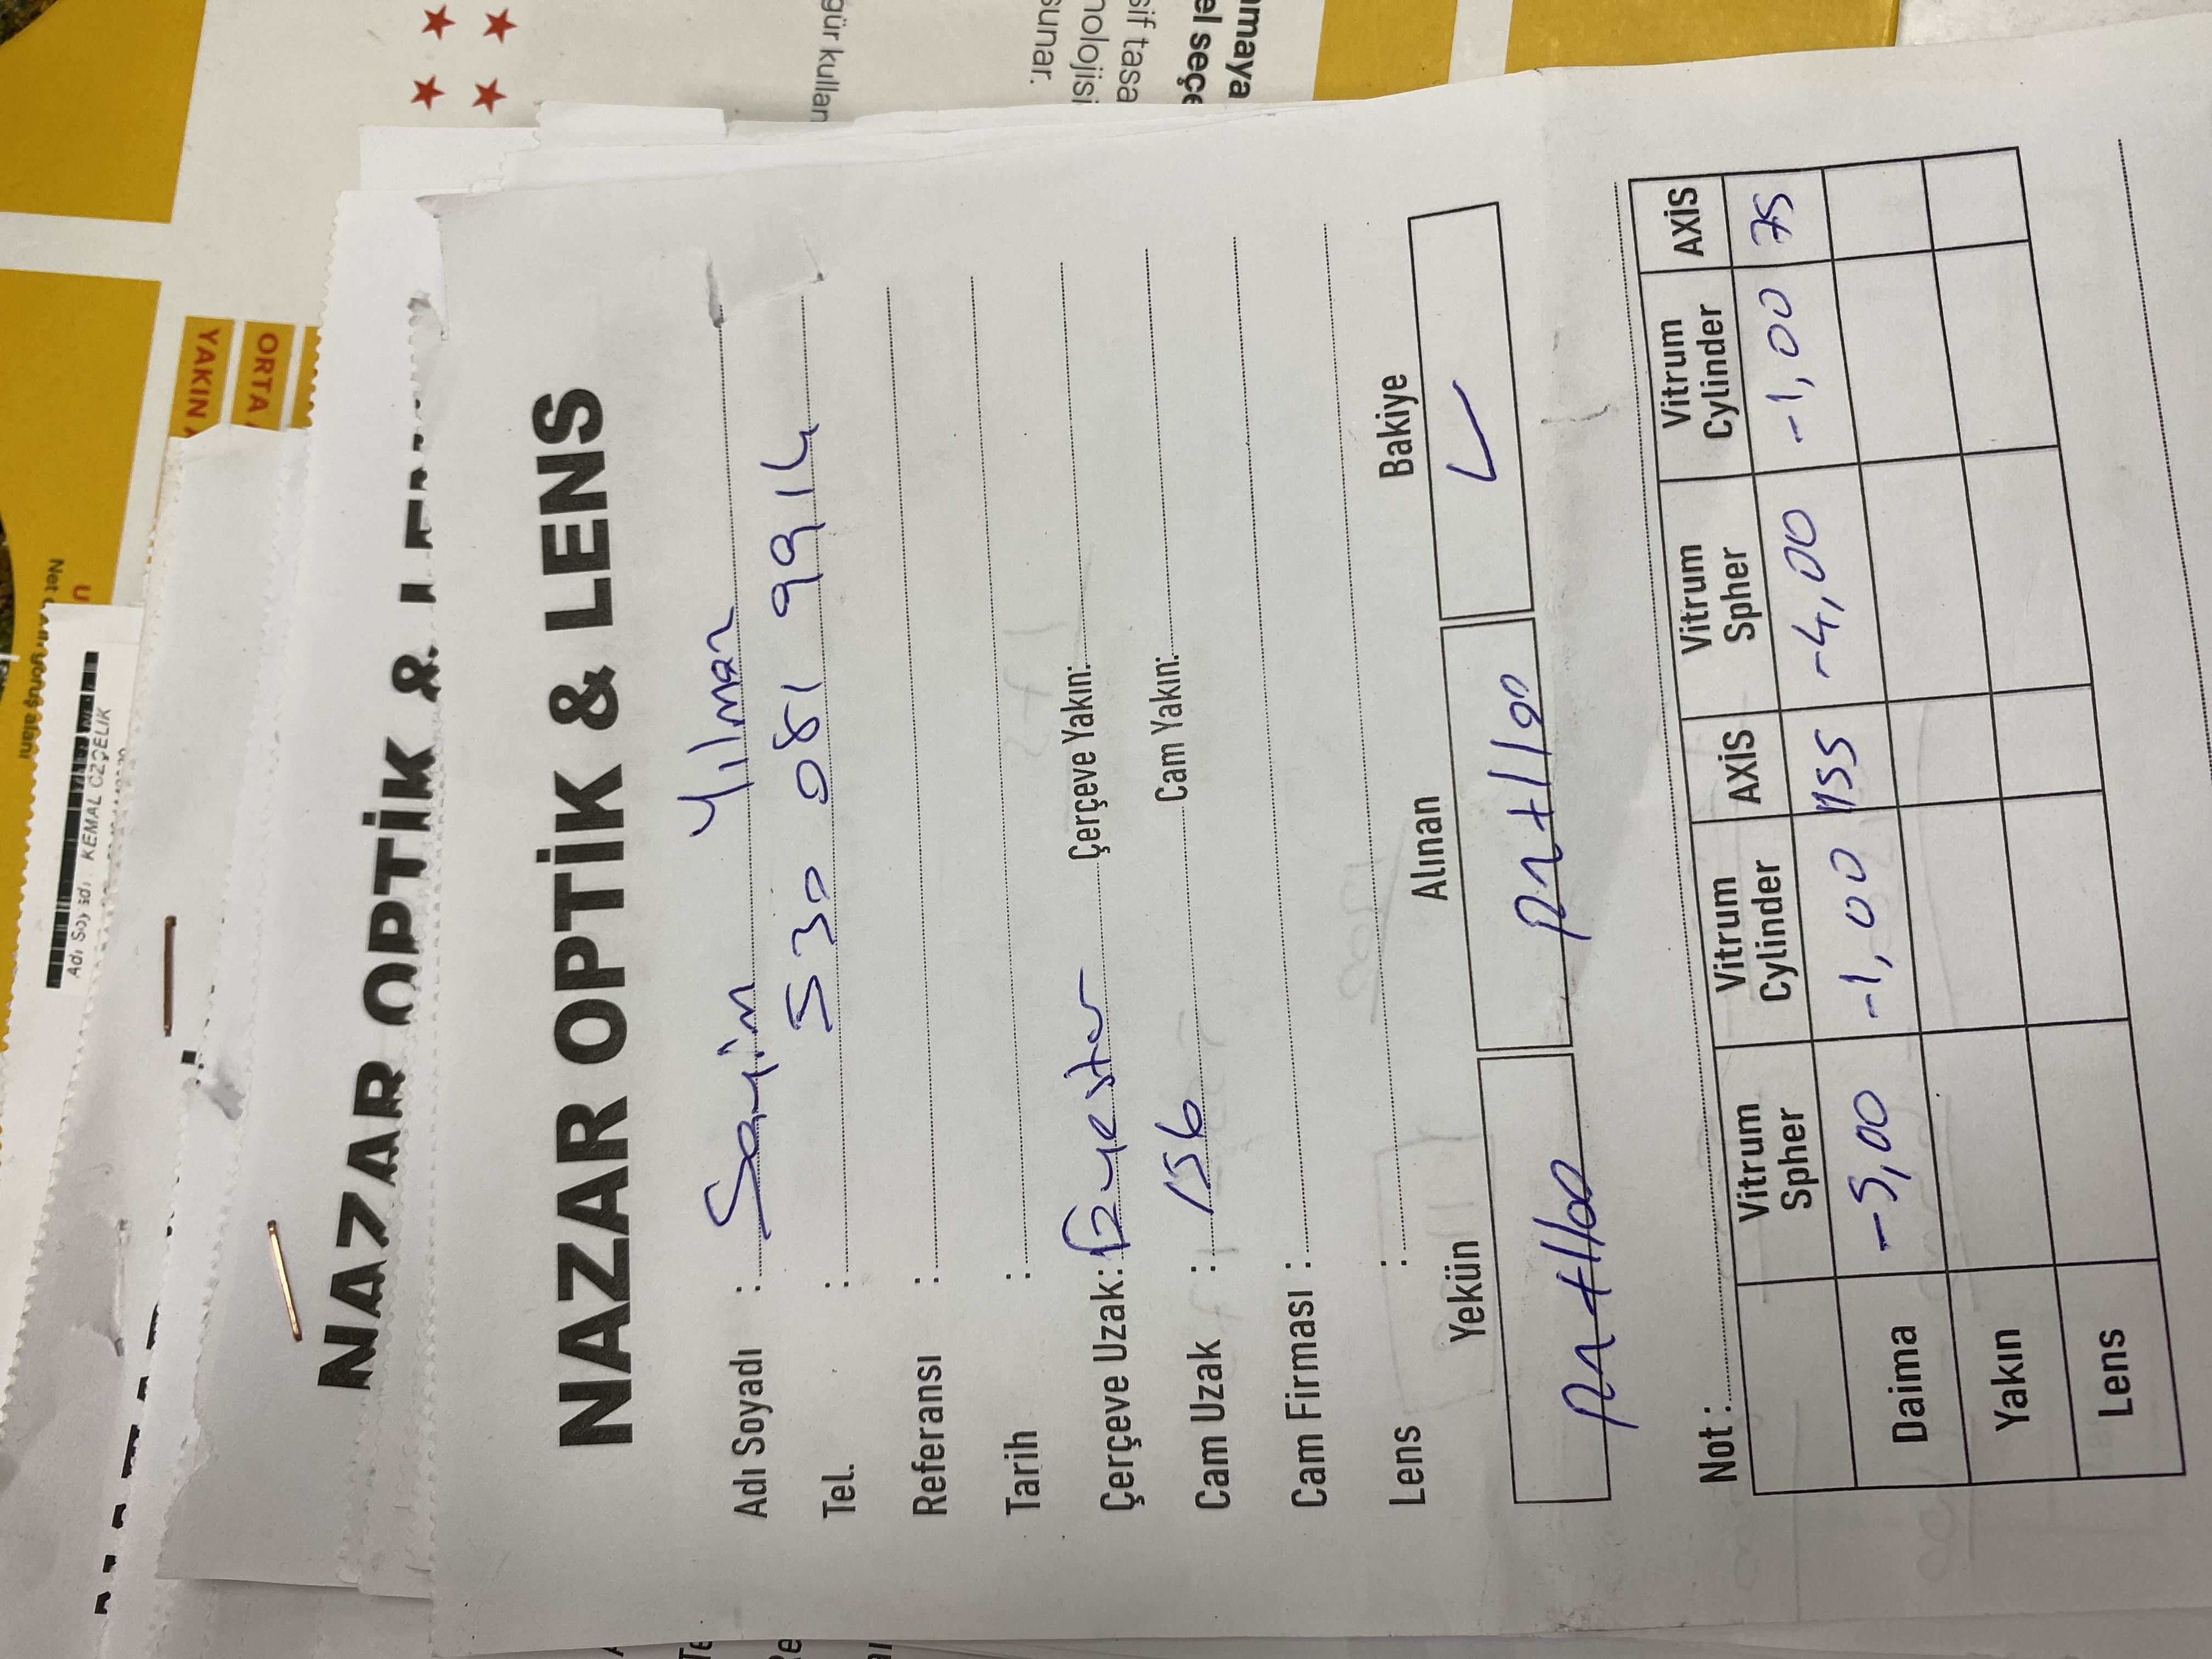 Net görüş alanı
Adı Soyadı : KEMAL ÖZÇELİK
YAKIN
ORTA
NAZAR OPTİK & LEN
NAZAR OPTİK & LENS
Adı Soyadı : Sayim Yılmaz
Tel. : 530 081 9914
Referansı :
Tarih :
Çerçeve Uzak: Eyestar Çerçeve Yakın:
Cam Uzak : 156 Cam Yakın:
Cam Firması :
Lens :
Yekün Alınan Bakiye
+1100 +1100
Not :
Vitrum Spher Vitrum Cylinder AXİS Vitrum Spher Vitrum Cylinder AXİS
Daima -5,00 -1,00 155 -4,00 -1,00 75
Yakın
Lens
gür kullan
sunar.
nolojisi
sif tasa
el seçe